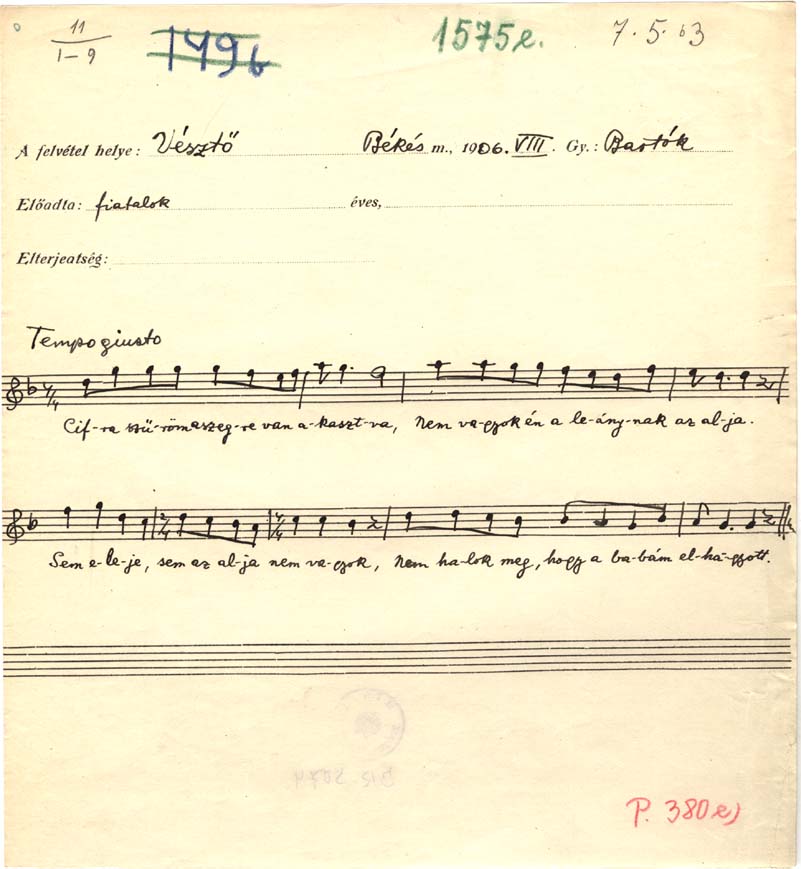 11
I-9
149b
1575e.
7.5.63
A felvétel helye: Vésztő Békés m., 1906. VIII. Gy.: Bartók
Előadta: fiatalok éves,
Elterjedtség:
Tempo giusto
Cif-ra szű-röm a szeg-re van a-kaszt-va, Nem va-gyok én a le-ány-nak az al-ja.
Sem e-le-je, sem az al-ja nem va-gyok, Nem ha-lok meg, hogy a ba-bám el-ha-gyott.
P. 380e)